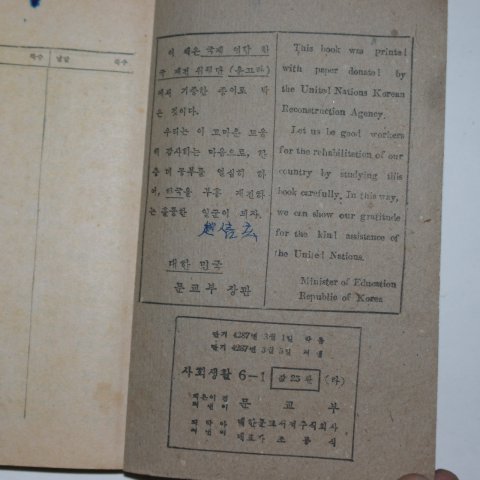 이 책은 국제 연합 한
국 재건 위원단 (운끄라)
에서 기증한 종이로 박
은 것이다.
우리는 이 고마운 도움
에 감사하는 마음으로, 한
층 더 공부를 열심히 하
여, 한국을 부흥 재건하
는 훌륭한 일군이 되자.
대한 민국
문교부 장관
This book was printed
with paper donated by
the United Nations Korean
Reconstruction Agency.
Let us be good workers
for the rehabilitation of our
country by studying this
book carefully. In this way,
we can show our gratitude
for the kind assistance of
the United Nations.
Minister of Education
Republic of Korea
단기 4287년 3월 1일
단기 4287년 3월 5일
사회생활 6-1
문 교 부
대한문교서적주식회사
대표자